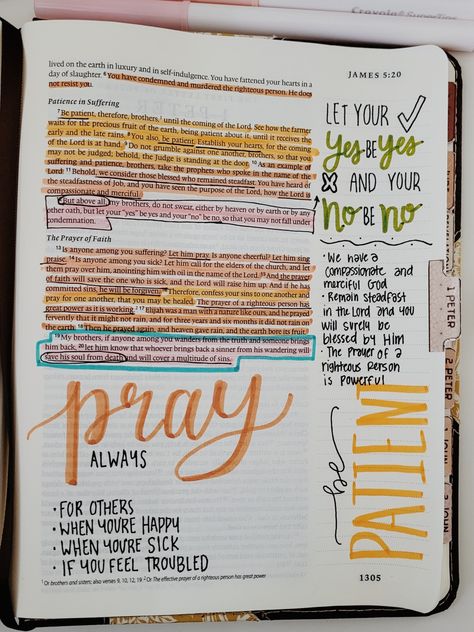 Crayola SuperTips
JAMES 5:20
lived on the earth in luxury and in self-indulgence. You have fattened your hearts in a
day of slaughter. 6 You have condemned and murdered the righteous person. He does
not resist you.
Patience in Suffering
7 Be patient, therefore, brothers, 1 until the coming of the Lord. See how the farmer
waits for the precious fruit of the earth, being patient about it, until it receives the
early and the late rains. 8 You also, be patient. Establish your hearts, for the coming
of the Lord is at hand. 9 Do not grumble against one another, brothers, so that you
may not be judged; behold, the Judge is standing at the door. 10 As an example of
suffering and patience, brothers, take the prophets who spoke in the name of the
Lord. 11 Behold, we consider those blessed who remained steadfast. You have heard of
the steadfastness of Job, and you have seen the purpose of the Lord, how the Lord is
compassionate and merciful.
12 But above all, my brothers, do not swear, either by heaven or by earth or by any
other oath, but let your "yes" be yes and your "no" be no, so that you may not fall under
condemnation.
The Prayer of Faith
13 Is anyone among you suffering? Let him pray. Is anyone cheerful? Let him sing
praise. 14 Is anyone among you sick? Let him call for the elders of the church, and let
them pray over him, anointing him with oil in the name of the Lord. 15 And the prayer
of faith will save the one who is sick, and the Lord will raise him up. And if he has
committed sins, he will be forgiven. 16 Therefore, confess your sins to one another and
pray for one another, that you may be healed. The prayer of a righteous person has
great power as it is working. 2 17 Elijah was a man with a nature like ours, and he prayed
fervently that it might not rain, and for three years and six months it did not rain on
the earth. 18 Then he prayed again, and heaven gave rain, and the earth bore its fruit.
19 My brothers, if anyone among you wanders from the truth and someone brings
him back, 20 let him know that whoever brings back a sinner from his wandering will
save his soul from death and will cover a multitude of sins.
pray
ALWAYS
• FOR OTHERS
• WHEN YOU'RE HAPPY
• WHEN YOU'RE SICK
• IF YOU FEEL TROUBLED
1 Or brothers and sisters; also verses 9, 10, 12, 19. 2 Or The effective prayer of a righteous person has great power
LET YOUR
yes BE yes
AND YOUR
no BE no
• We have a
compassionate and
merciful God
• Remain steadfast
in the Lord and you
will surely be
blessed by Him
• The prayer of a
righteous person
is powerful
be
PATIENT
1305
1 PETER
2 PETER
1 JOHN
2 JOHN